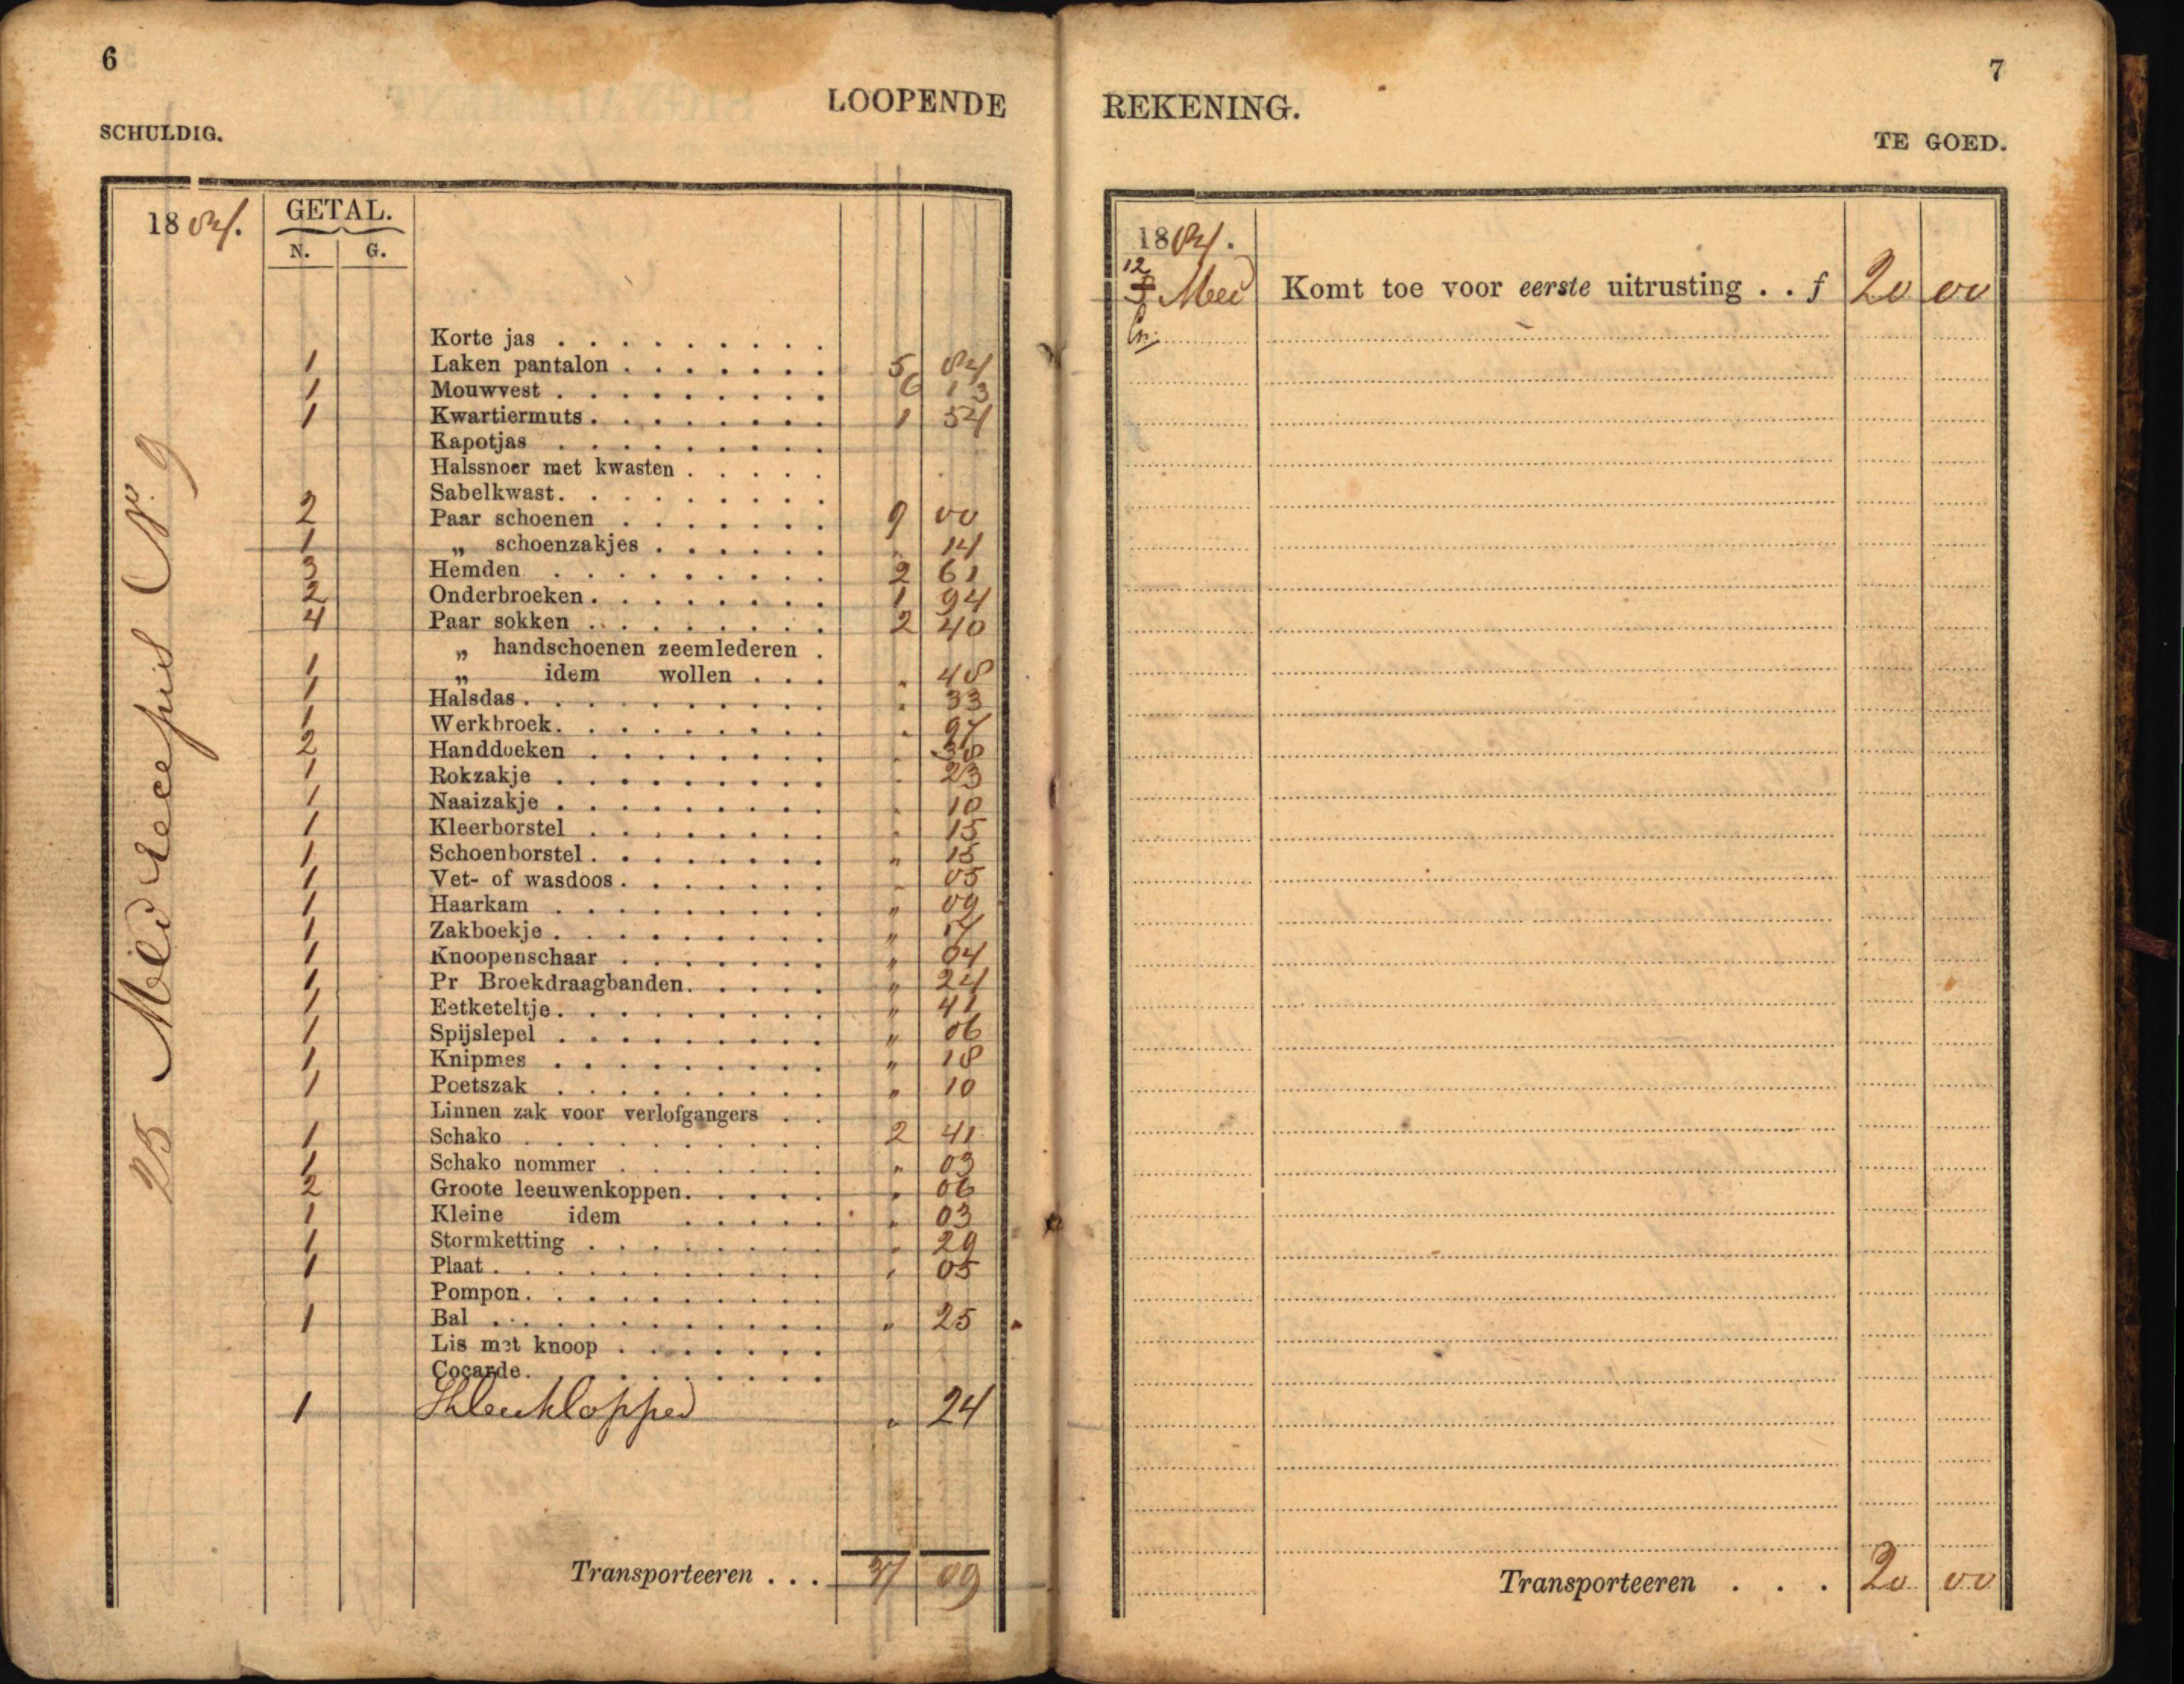 6
LOOPENDE
SCHULDIG.
1884.
GETAL.
N. G.
25 Mei Recepis No. 9
Korte jas . . . . . . . . .
1 Laken pantalon . . . . . . . 5 84
1 Mouwvest . . . . . . . . . 6 13
1 Kwartiermuts . . . . . . . . 1 54
Kapotjas . . . . . . . . .
Halssnoer met kwasten . . . . .
Sabelkwast . . . . . . . . .
2 Paar schoenen . . . . . . . 9 00
1 „ schoenzakjes . . . . . . „ 14
3 Hemden . . . . . . . . . 2 61
2 Onderbroeken . . . . . . . . 1 94
4 Paar sokken . . . . . . . . 2 40
„ handschoenen zeemlederen .
1 „ idem wollen . . . „ 48
1 Halsdas . . . . . . . . . . „ 33
1 Werkbroek . . . . . . . . . „ 97
2 Handdoeken . . . . . . . . „ 38
1 Rokzakje . . . . . . . . . „ 23
1 Naaizakje . . . . . . . . . „ 10
1 Kleerborstel . . . . . . . . „ 15
1 Schoenborstel . . . . . . . . „ 15
1 Vet- of wasdoos . . . . . . . „ 05
1 Haarkam . . . . . . . . . „ 09
1 Zakboekje . . . . . . . . . „
1 Knoopenschaar . . . . . . . „ 04
1 Pr Broekdraagbanden . . . . . „ 24
1 Eetketeltje . . . . . . . . . „ 41
1 Spijslepel . . . . . . . . . „ 06
1 Knipmes . . . . . . . . . „ 18
1 Poetszak . . . . . . . . . „ 10
Linnen zak voor verlofgangers . .
1 Schako . . . . . . . . . . 2 41
1 Schako nommer . . . . . . . „ 03
2 Groote leeuwenkoppen . . . . . „ 06
1 Kleine idem . . . . . „ 03
1 Stormketting . . . . . . . . „ 29
1 Plaat . . . . . . . . . . . „ 05
Pompon . . . . . . . . . .
1 Bal . . . . . . . . . . . „ 25
Lis met knoop . . . . . . .
Cocarde . . . . . . . . . .
1 „ 24
Transporteeren . . . 37 09
7
REKENING.
TE GOED.
1884.
12 Mei Komt toe voor eerste uitrusting . . f 20 00
Transporteeren . . . 20 00